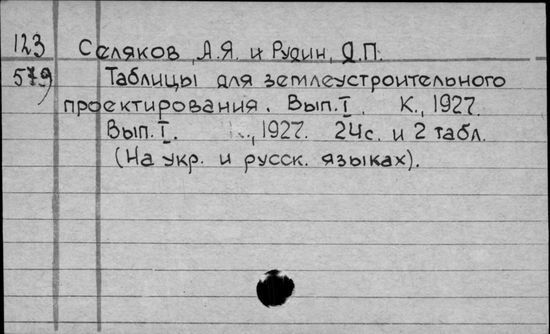 123 Селяков, А.Я. и Рудин, Д.П.
579 Таблицы для землеустроительного
проектирования. Вып. I. К., 1927.
Вып. I. К., 1927. 24с. и 2 табл.
(На укр. и русск. языках).